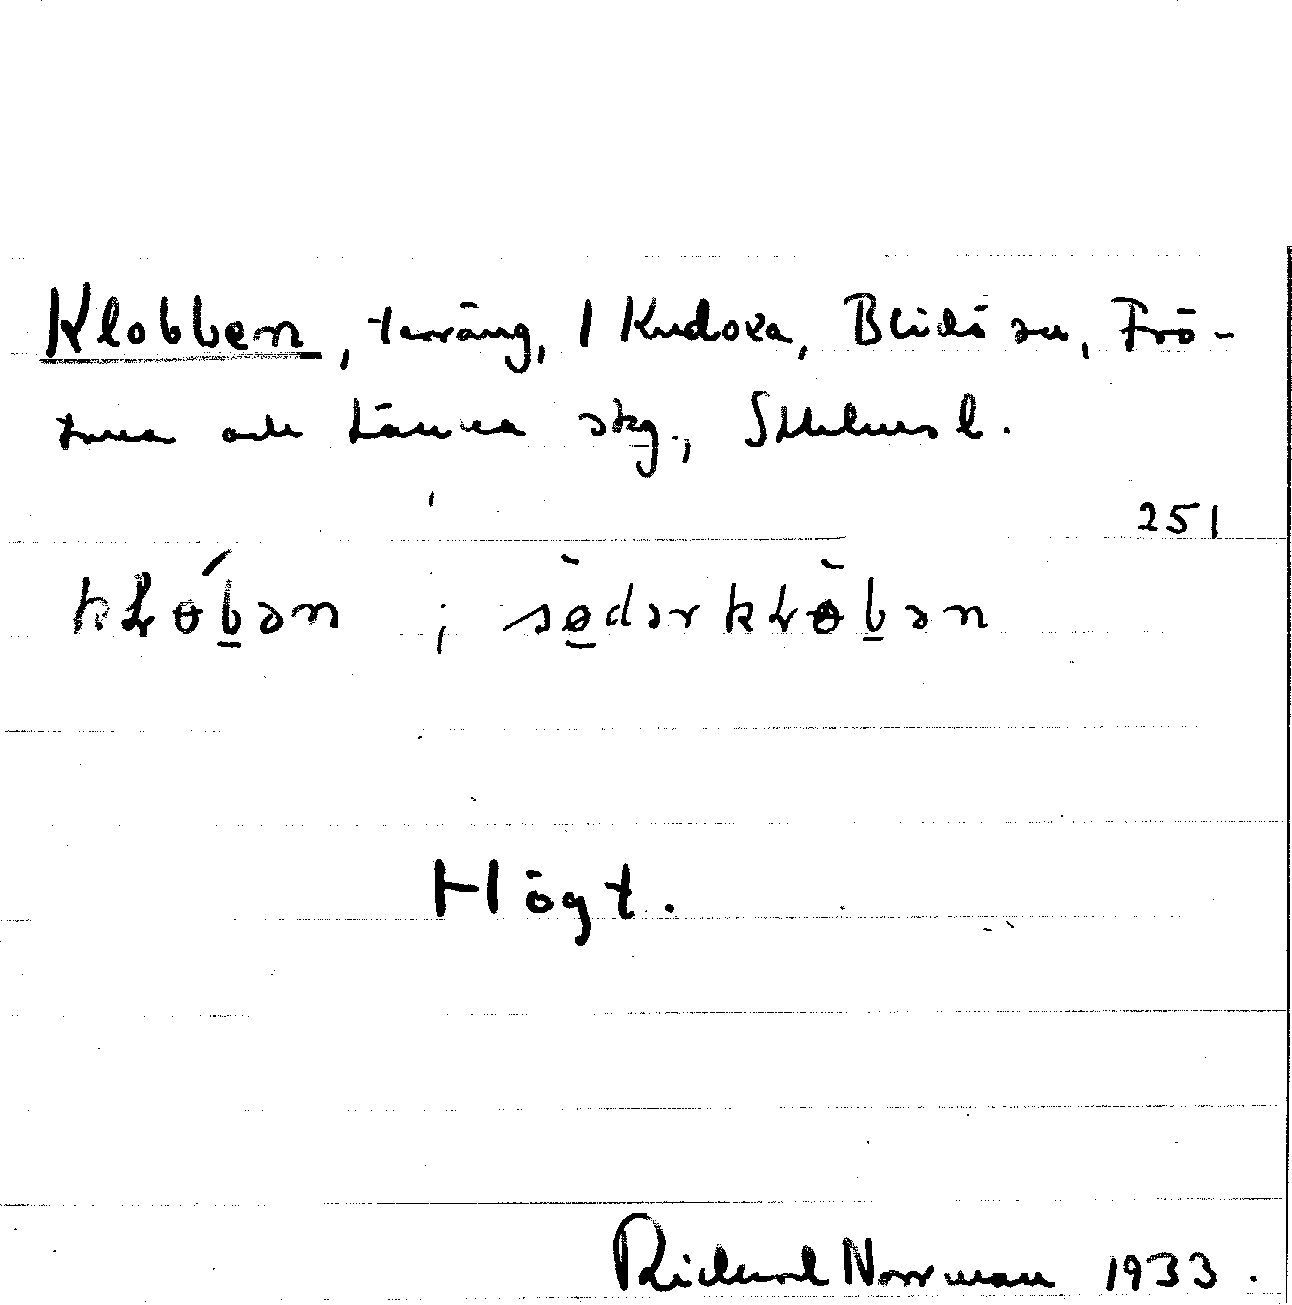 Klobben, terräng, 1 Kudoxa, Blidö sn, Frö-
tuna och Länna skg., Sthlms l.
251
kłɵ́b̲ən ; sø̲̀dərkłɵ̀b̲ən
Högt.
Rickard Norrman 1933.